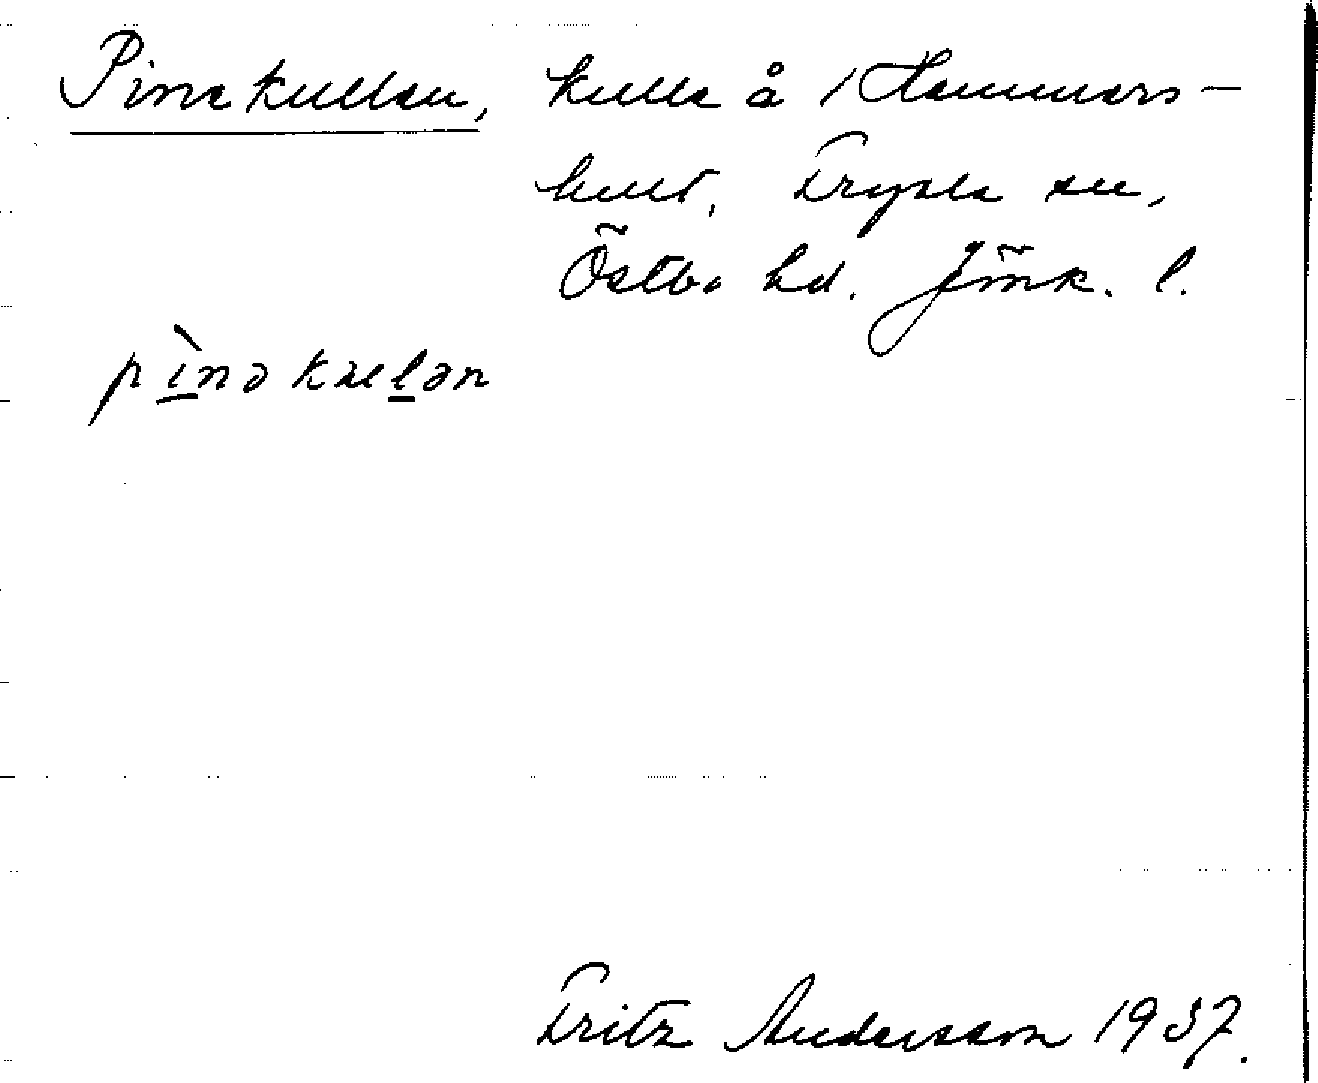 Pinekullen, kulle å 1 Hammars-
hult, Fryele sn,
Östbo hd. Jönk. l.
pìnəkuelən
Fritz Andersson 1937.